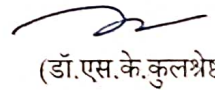 (डॉ.एस.के.कुलश्रेष्ठ